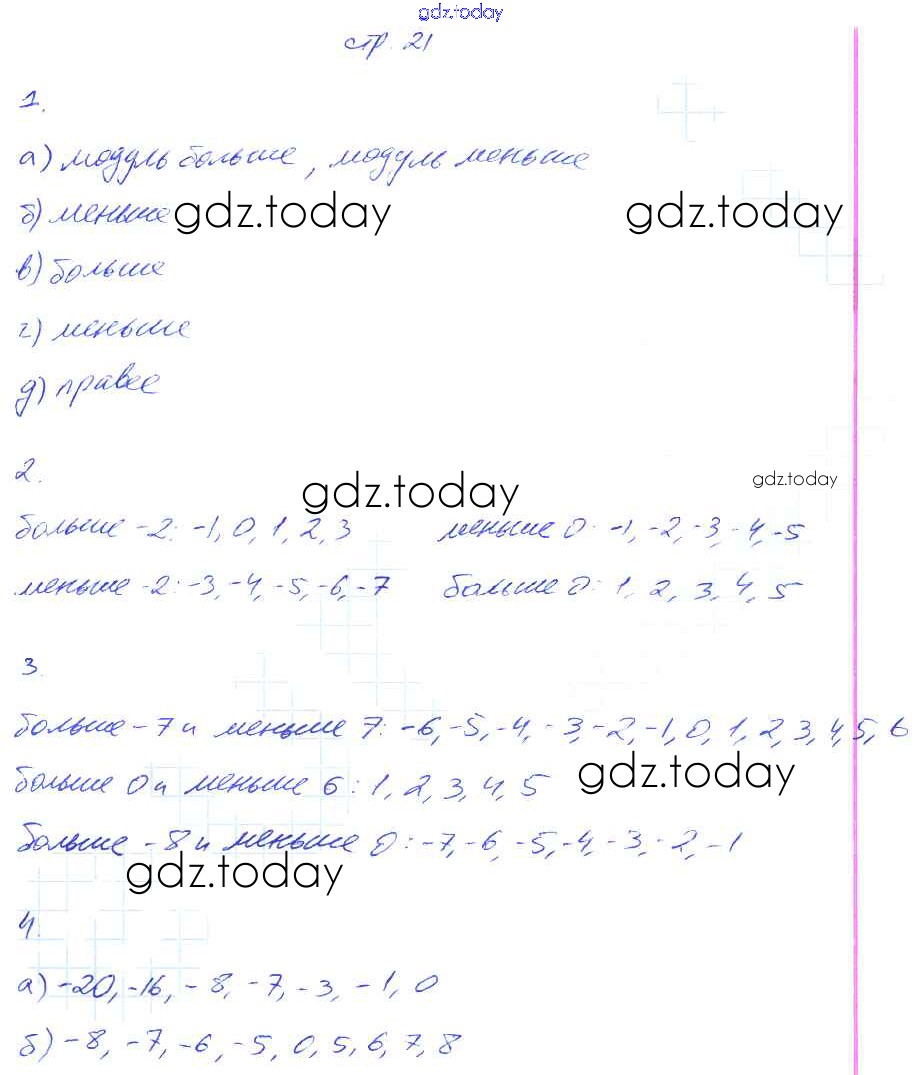 gdz.today
стр. 21
1.
а) модуль больше, модуль меньше
б) меньше gdz.today gdz.today
в) больше
г) меньше
д) правее
2. gdz.today gdz.today
больше -2: -1, 0, 1, 2, 3 меньше 0: -1, -2, -3, -4, -5
меньше -2: -3, -4, -5, -6, -7 больше 0: 1, 2, 3, 4, 5
3.
больше -7 и меньше 7: -6, -5, -4, -3, -2, -1, 0, 1, 2, 3, 4, 5, 6
больше 0 и меньше 6: 1, 2, 3, 4, 5 gdz.today
больше -8 и меньше 0: -7, -6, -5, -4, -3, -2, -1
gdz.today
4.
а) -20, -16, -8, -7, -3, -1, 0
б) -8, -7, -6, -5, 0, 5, 6, 7, 8